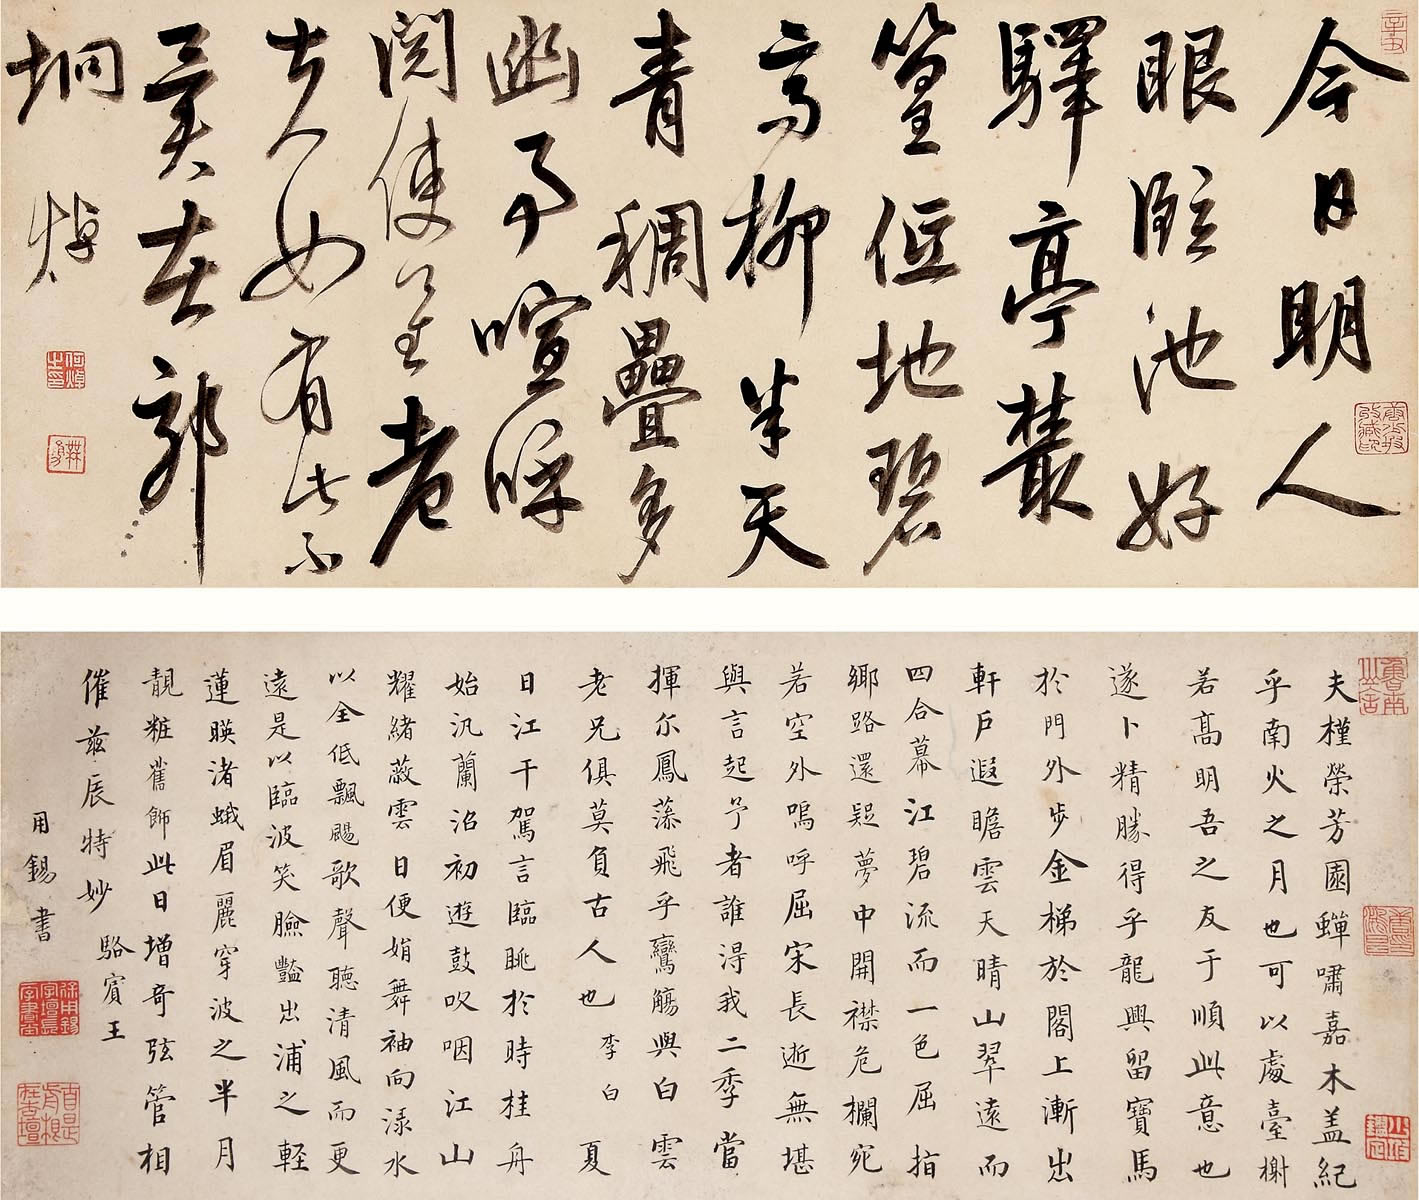 今日明人
眼臨池好
驛亭叢
篁低地碧
高柳半天
青稠疊多
幽事喧呼
閱使星老
夫如有此不
異在郊
坰 焯
何焯之印
夫槿榮芳園蟬嘯嘉木盖紀
乎南火之月也可以處臺榭
若髙明吾之友于順此意也
遂卜精勝得乎龍興留寶馬
於門外步金梯於閣上漸出
軒戶遐瞻雲天晴山翠遠而
四合幕江碧流而一色屈指
鄉路還疑夢中開襟危欄宛
若空外嗚呼屈宋長逝無堪
與言起予者誰得我二季當
揮尓鳳藻飛乎鸞觴與白雲
老兄俱莫負古人也 李白 夏
日江干駕言臨眺於時桂舟
始汎蘭沼初遊鼓吹咽江山
耀緒蔽雲日便娟舞袖向淥水
以全低飄颺歌聲聽清風而更
遠是以臨波笑臉豔出浦之輕
蓮暎渚蛾眉麗穿波之半月
靚粧舊飾此日增奇弦管相
催茲辰特妙 駱賓王
用錫書